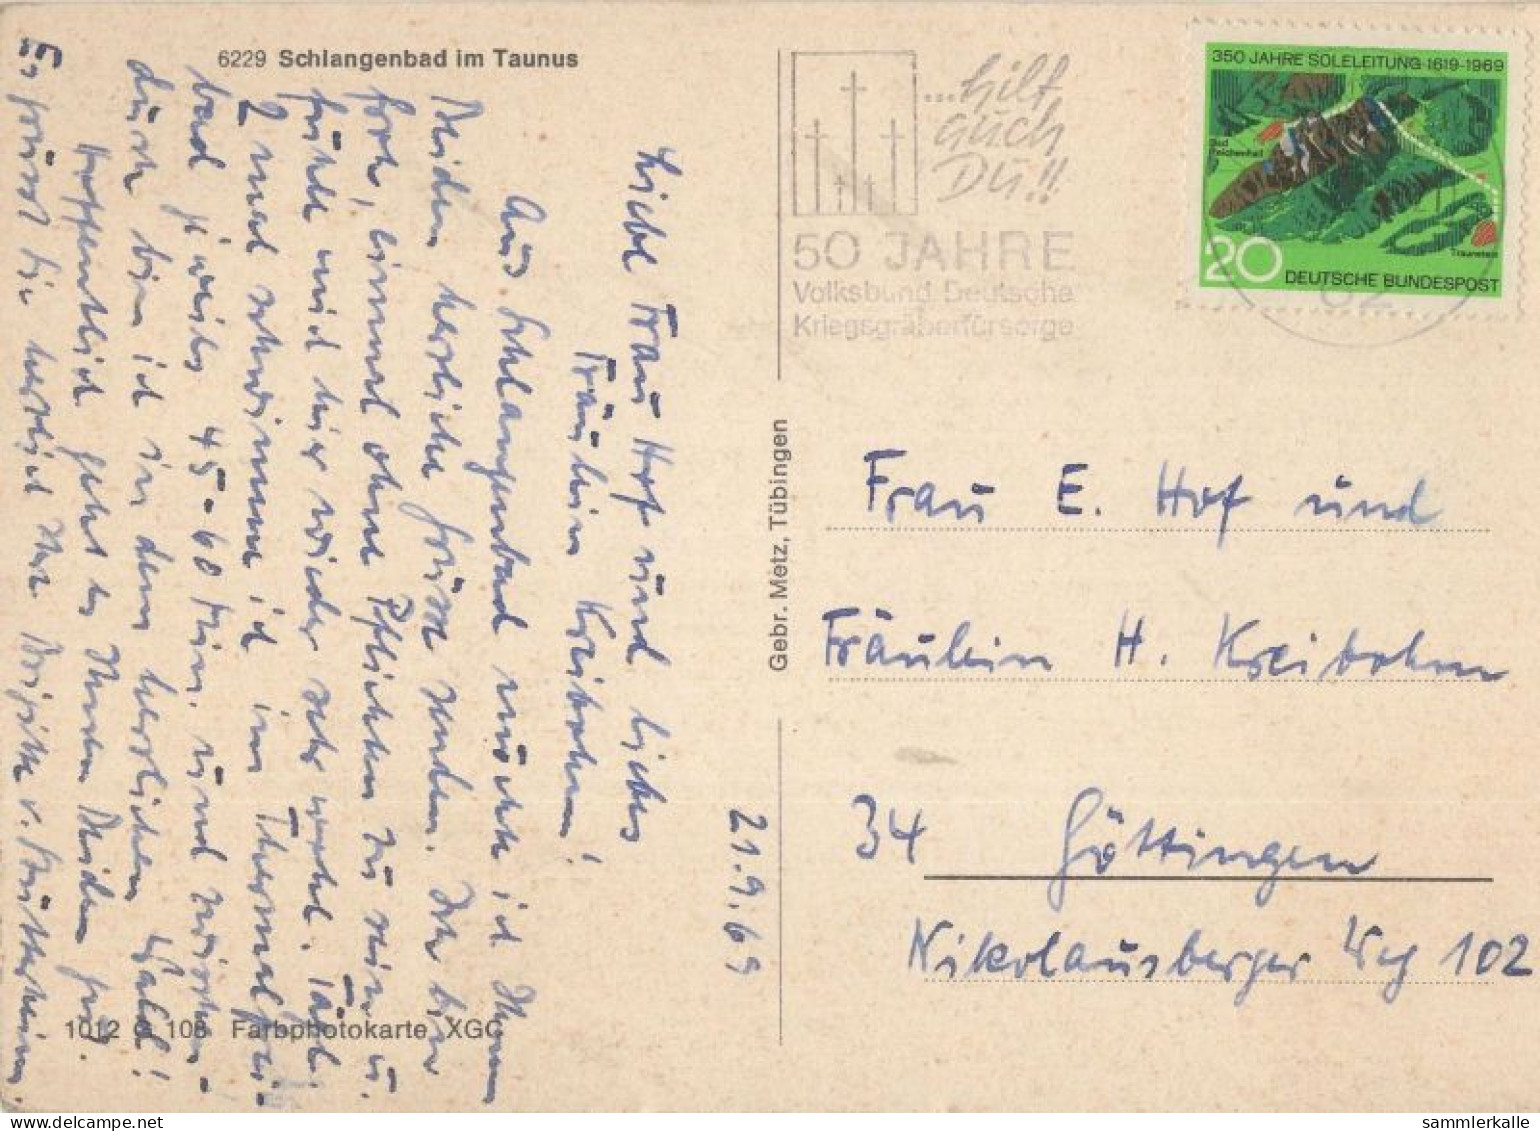 6229 Schlangenbad im Taunus
...hilf
auch
Du!!
50 JAHRE
Volksbund Deutsche
Kriegsgräberfürsorge
350 JAHRE SOLELEITUNG 1619-1969
Bad
Reichenhall
Traunstein
20
DEUTSCHE BUNDESPOST
62
21.9.69
Liebe Frau Hof und liebes
Fräulein Kreibohm!
Aus Schlangenbad möchte ich Ihnen
Beiden herzliche Grüße senden. Ich bin
froh, einmal ohne Pflichten zu sein u.
fühle mich hier wieder sehr wohl. Tägl.
2 mal schwimme ich im Thermalfrei-
bad jeweils 45-60 Min. und zwischen-
durch bin ich in dem herrlichen Wald!
Hoffentlich geht es Ihnen Beiden gut.
Es grüßt Sie herzlich Ihre
Gebr. Metz, Tübingen
Frau E. Hof und
Fräulein H. Kreibohm
34 Göttingen
Nikolausberger Weg 102
1012 108 Farbphotokarte XGC
sammlerkalle